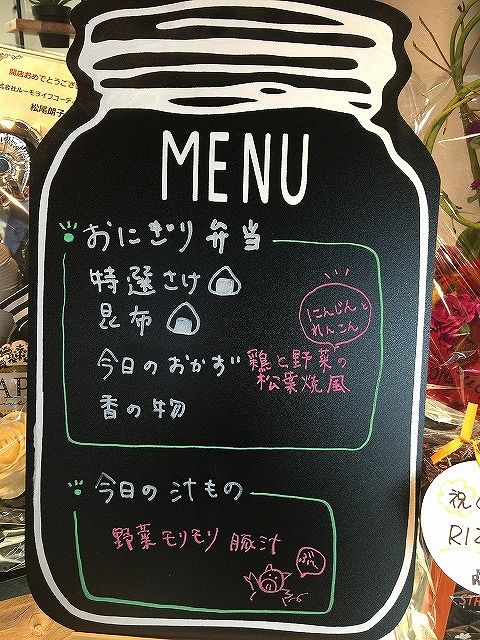 開店おめでとうござ
式会社ルーモライフコーデ
松尾朗子
MENU
おにぎり弁当
特選さけ
昆布
にんじんと
れんこん
今日のおかず
鶏と野菜の
松葉焼風
香の物
今日の汁もの
野菜モリモリ 豚汁
祝
RIZ